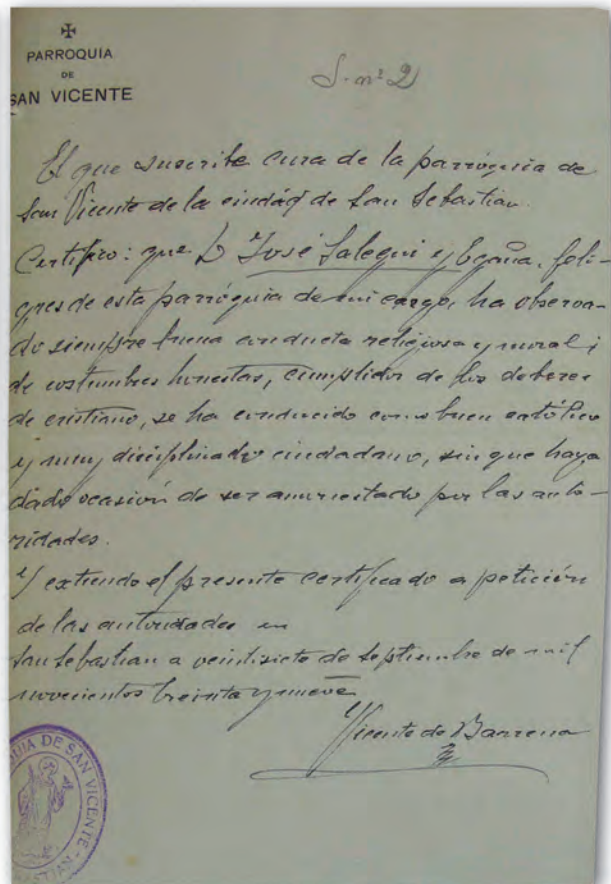 PARROQUIA
DE
SAN VICENTE
S. nº 2
El que suscribe cura de la parróquia de
San Vicente de la ciudád de San Sebastian.
Certifico: que D José Salegui y Egaña, feli-
gres de esta parróquia de mi cargo, ha observa-
do siempre buena conducta religiosa y moral i
de costumbres honestas, cumplidor de los deberes
de cristiano, se ha conducido como buen católico
y muy disciplinado ciudadano, sin que haya
dado ocasión de ser amonestado por las auto-
ridades.
Y extiendo el presente certificado a petición
de las autoridades en
San Sebastian a veintisiete de septiembre de mil
novecientos treinta y nueve
Vicente de Barrena
QUIA DE SAN VICENTE
BASTIAN